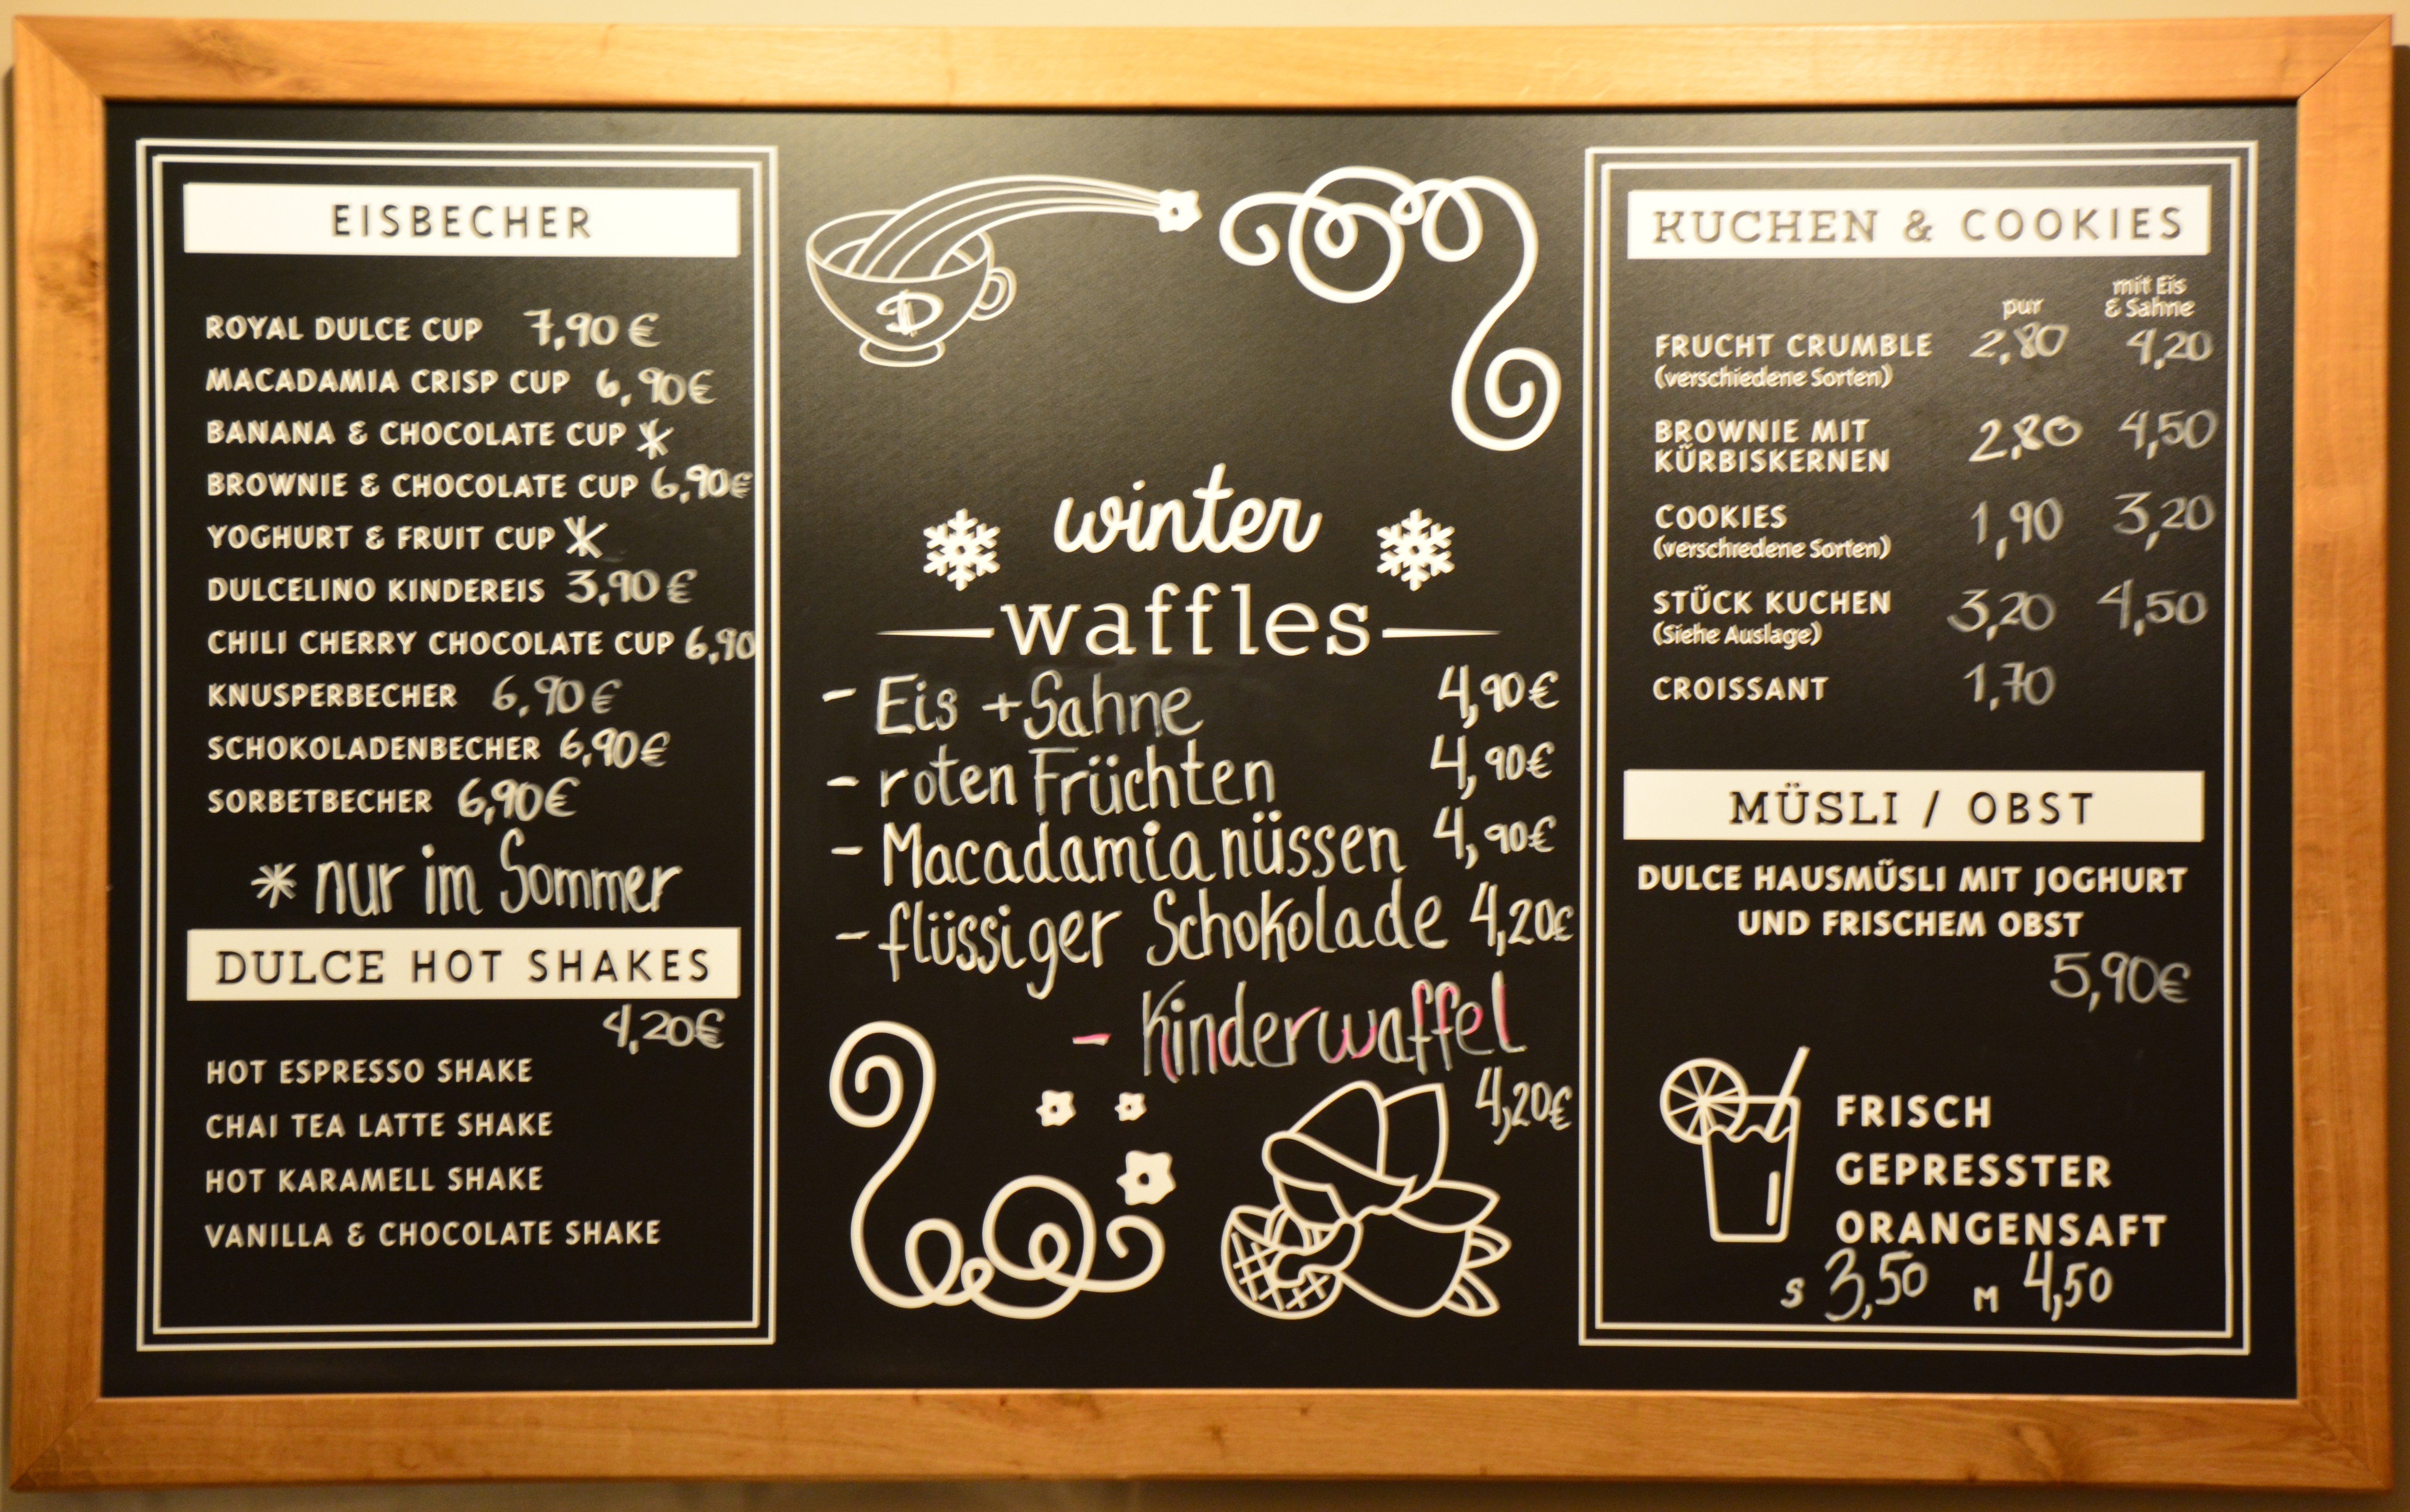 EISBECHER
ROYAL DULCE CUP 7,90 €
MACADAMIA CRISP CUP 6,90€
BANANA & CHOCOLATE CUP *
BROWNIE & CHOCOLATE CUP 6,90€
YOGHURT & FRUIT CUP *
DULCELINO KINDEREIS 3,90 €
CHILI CHERRY CHOCOLATE CUP 6,90
KNUSPERBECHER 6,90 €
SCHOKOLADENBECHER 6,90€
SORBETBECHER 6,90€
* nur im Sommer
DULCE HOT SHAKES
4,20€
HOT ESPRESSO SHAKE
CHAI TEA LATTE SHAKE
HOT KARAMELL SHAKE
VANILLA & CHOCOLATE SHAKE
D
winter
waffles
- Eis + Sahne 4,90€
- roten Früchten 4,90€
- Macadamianüssen 4,90€
- flüssiger Schokolade 4,20€
- Kinderwaffel
4,20€
KUCHEN & COOKIES
pur mit Eis
& Sahne
FRUCHT CRUMBLE 2,80 4,20
(verschiedene Sorten)
BROWNIE MIT 2,80 4,50
KÜRBISKERNEN
COOKIES 1,90 3,20
(verschiedene Sorten)
STÜCK KUCHEN 3,20 4,50
(Siehe Auslage)
CROISSANT 1,70
MÜSLI / OBST
DULCE HAUSMÜSLI MIT JOGHURT
UND FRISCHEM OBST
5,90€
FRISCH
GEPRESSTER
ORANGENSAFT
S 3,50 M 4,50